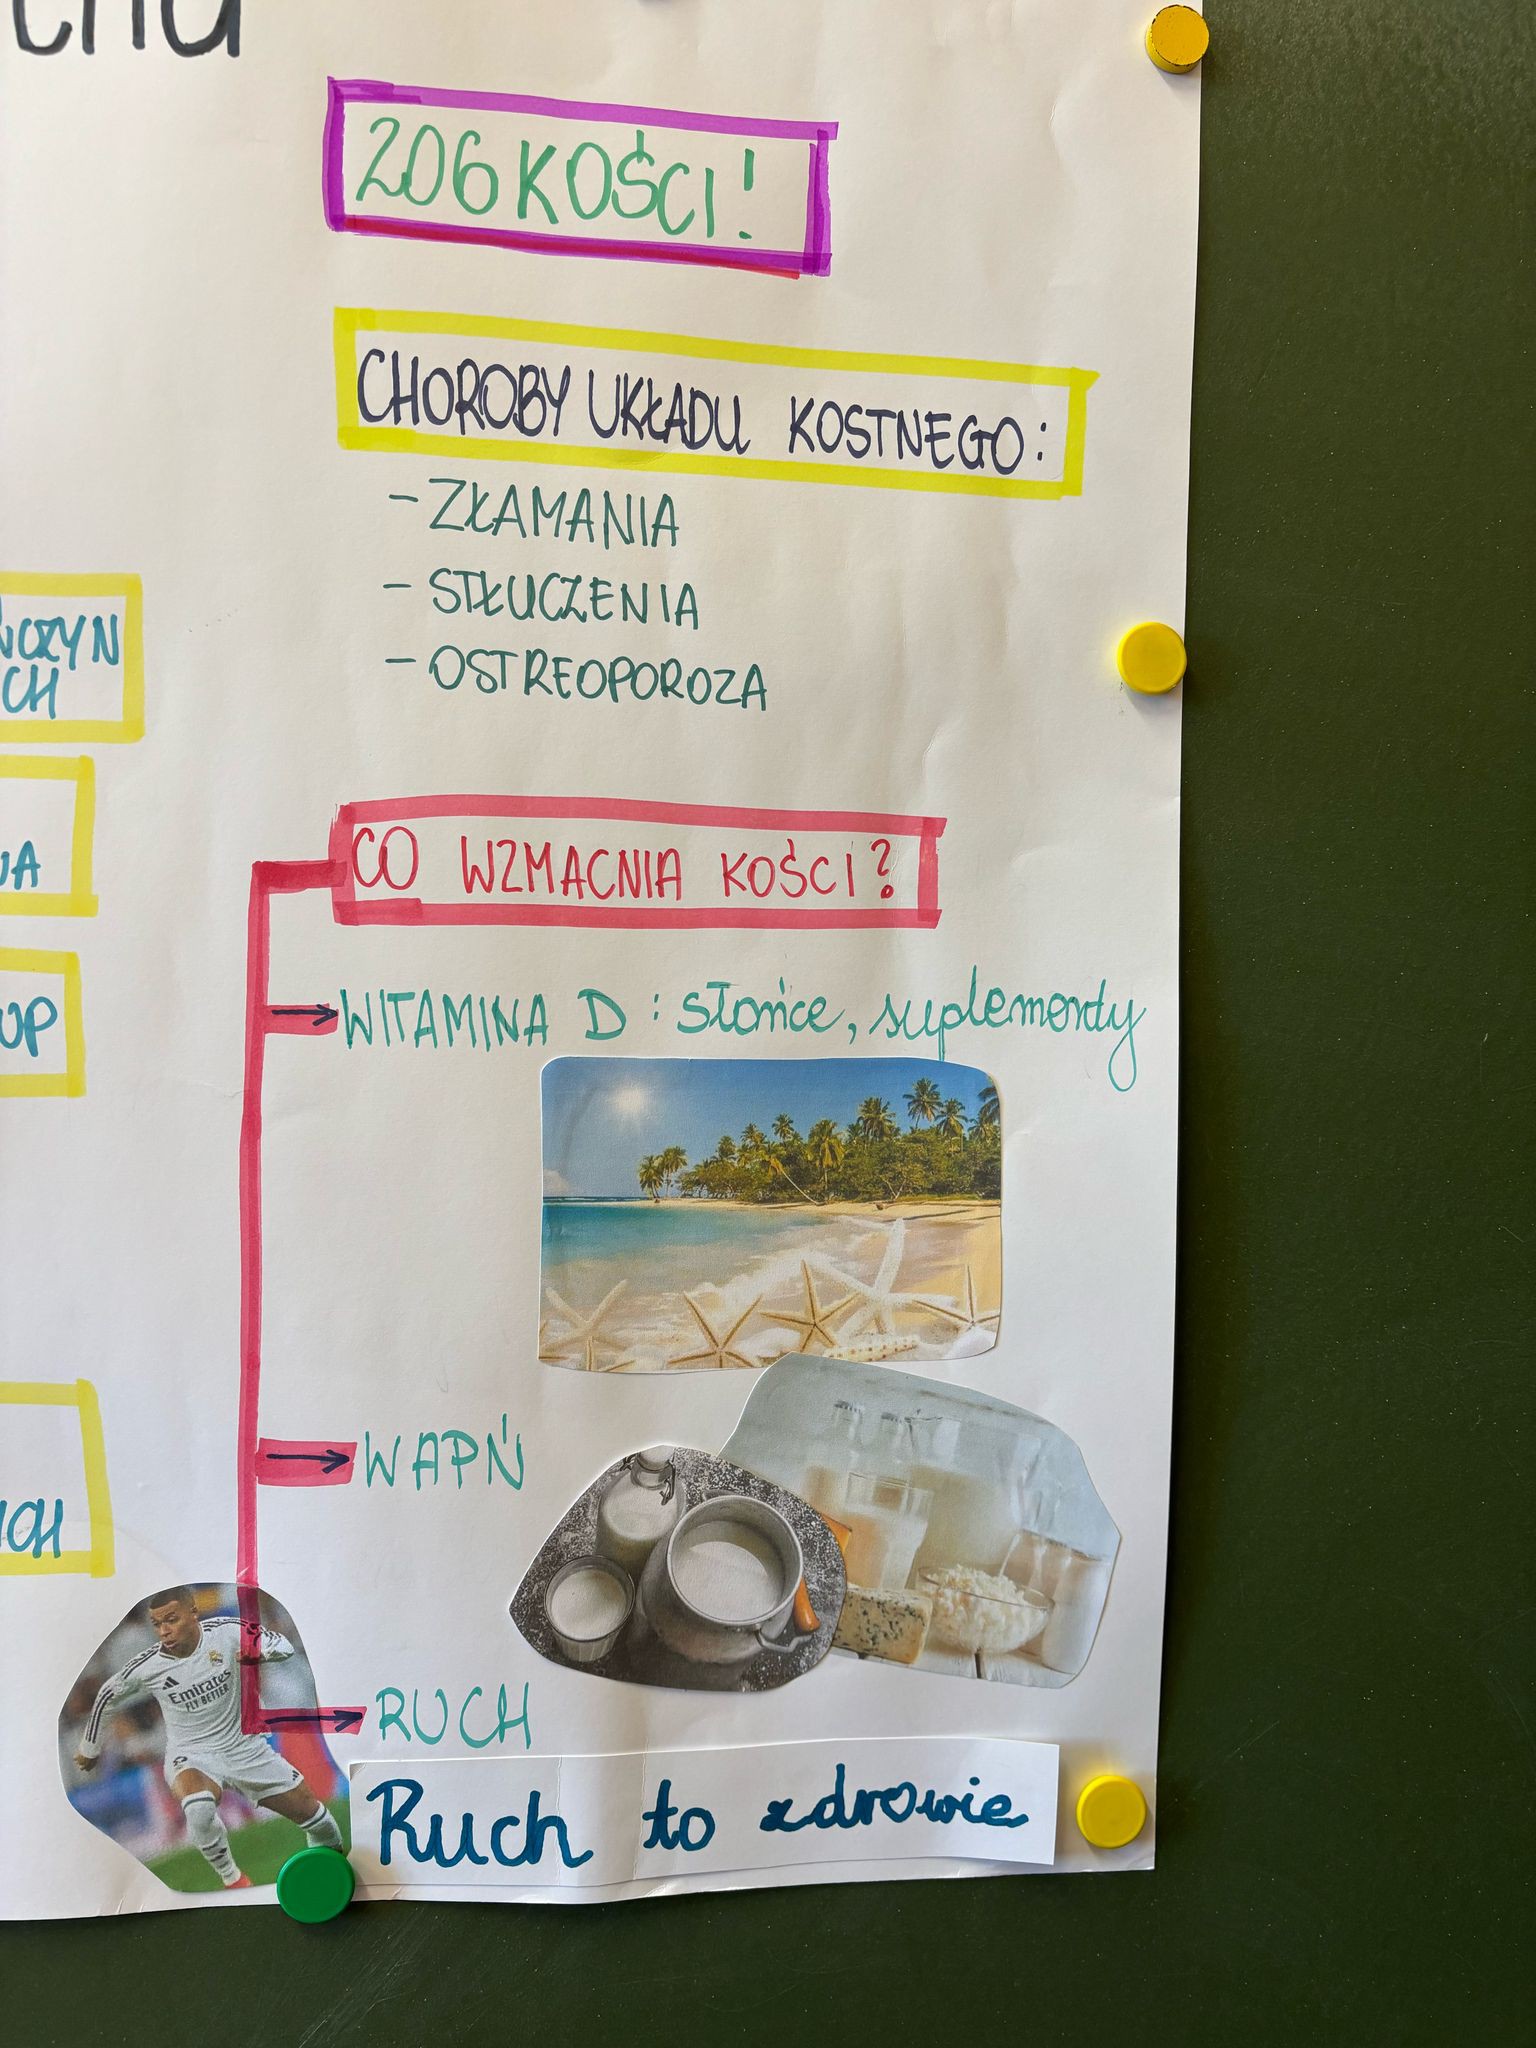 206 KOŚCI!
CHOROBY UKŁADU KOSTNEGO:
- ZŁAMANIA
- STŁUCZENIA
- OSTREOPOROZA
CO WZMACNIA KOŚCI?
→ WITAMINA D: słońce, suplementy
→ WAPŃ
→ RUCH
Ruch to zdrowie
Emirates
FLY BETTER
CH
UP